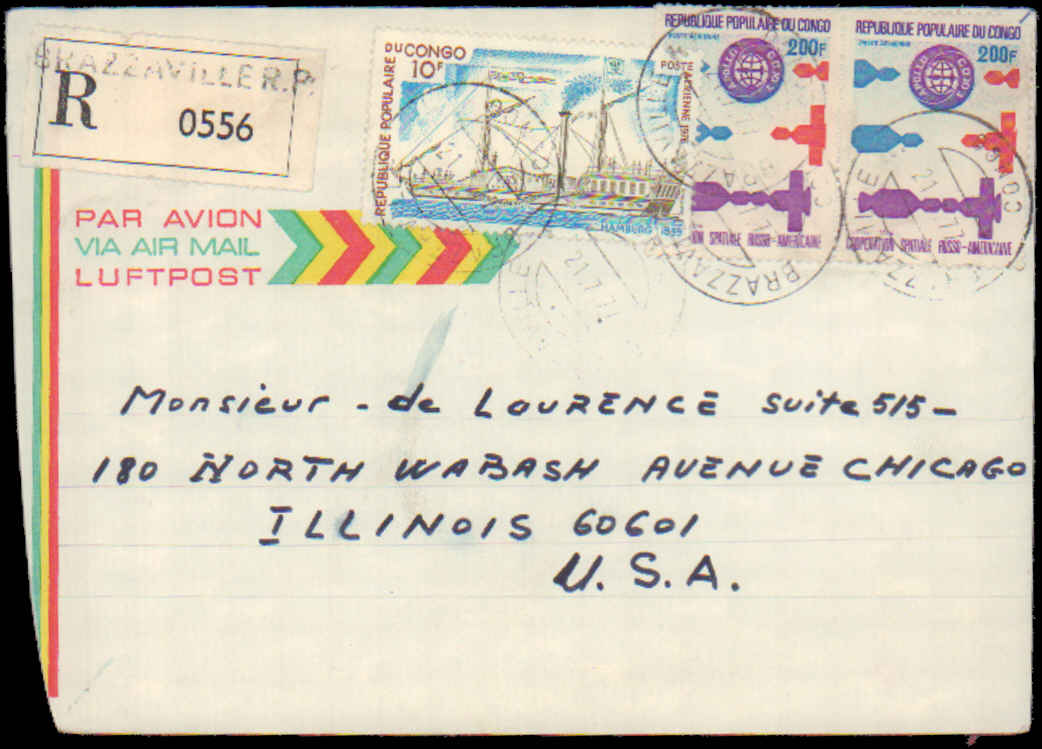 BRAZZAVILLE R.P.
R
0556
REPUBLIQUE POPULAIRE DU CONGO
10F
POSTE AERIENNE 1976
HAMBURG 1839
REPUBLIQUE POPULAIRE DU CONGO
POSTE AERIENNE
200F
APOLLO
SPATIALE RUSSO-AMERICAINE
REPUBLIQUE POPULAIRE DU CONGO
POSTE AERIENNE
200F
APOLLO
COOPERATION SPATIALE RUSSO-AMERICAINE
BRAZZAVILLE
PAR AVION
VIA AIR MAIL
LUFTPOST
Monsieur - de LOURENCE suite 515 -
180 NORTH WABASH AVENUE CHICAGO
ILLINOIS 60601
U.S.A.